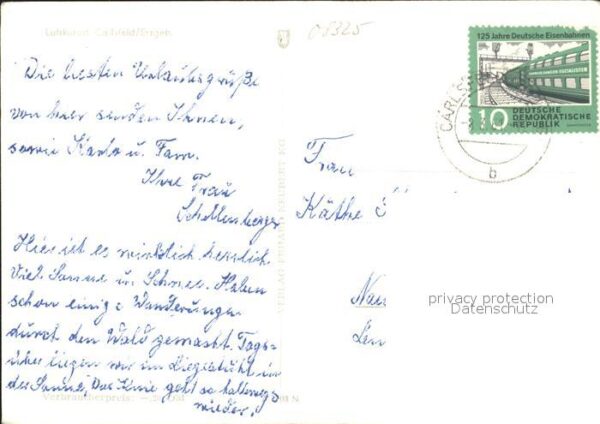 Luftkurort Carlsfeld/Erzgeb.
08325
Die besten Urlaubsgrüße
von hier senden Ihnen,
sowie Karlo u. Fam.
Ihre Frau
Schellenberger
Hier ist es wirklich herrlich.
Viel Sonne u. Schnee. Haben
schon einige Wanderungen
durch den Wald gemacht. Tags-
über liegen wir im Liegestuhl in
der Sonne. Das Knie geht so halbwegs
wieder.
Verbraucherpreis:
VERLAG
125 Jahre Deutsche Eisenbahnen
10 DEUTSCHE
DEMOKRATISCHE
REPUBLIK
CARLSFELD
b
Frau
Käthe
privacy protection
Datenschutz